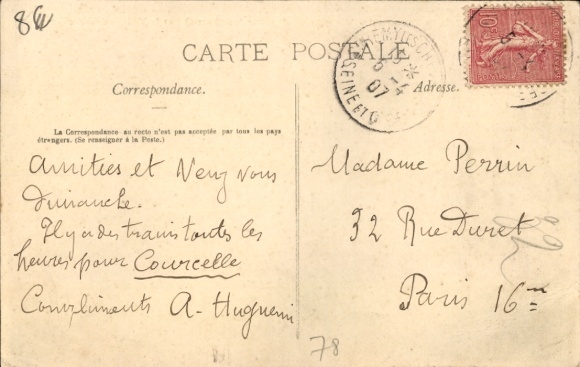 8
CARTE POSTALE
Correspondance.
Adresse.
La Correspondance au recto n'est pas acceptée par tous les pays
étrangers. (Se renseigner à la Poste.)
Amitiés et Venez vous
Dimanche.
Il y a des trains toutes les
heures pour Courcelle
Compliments A. Huguenin
Madame Perrin
32 Rue Duret
Paris 16me
10
5-4
07
SEINE ET O
78